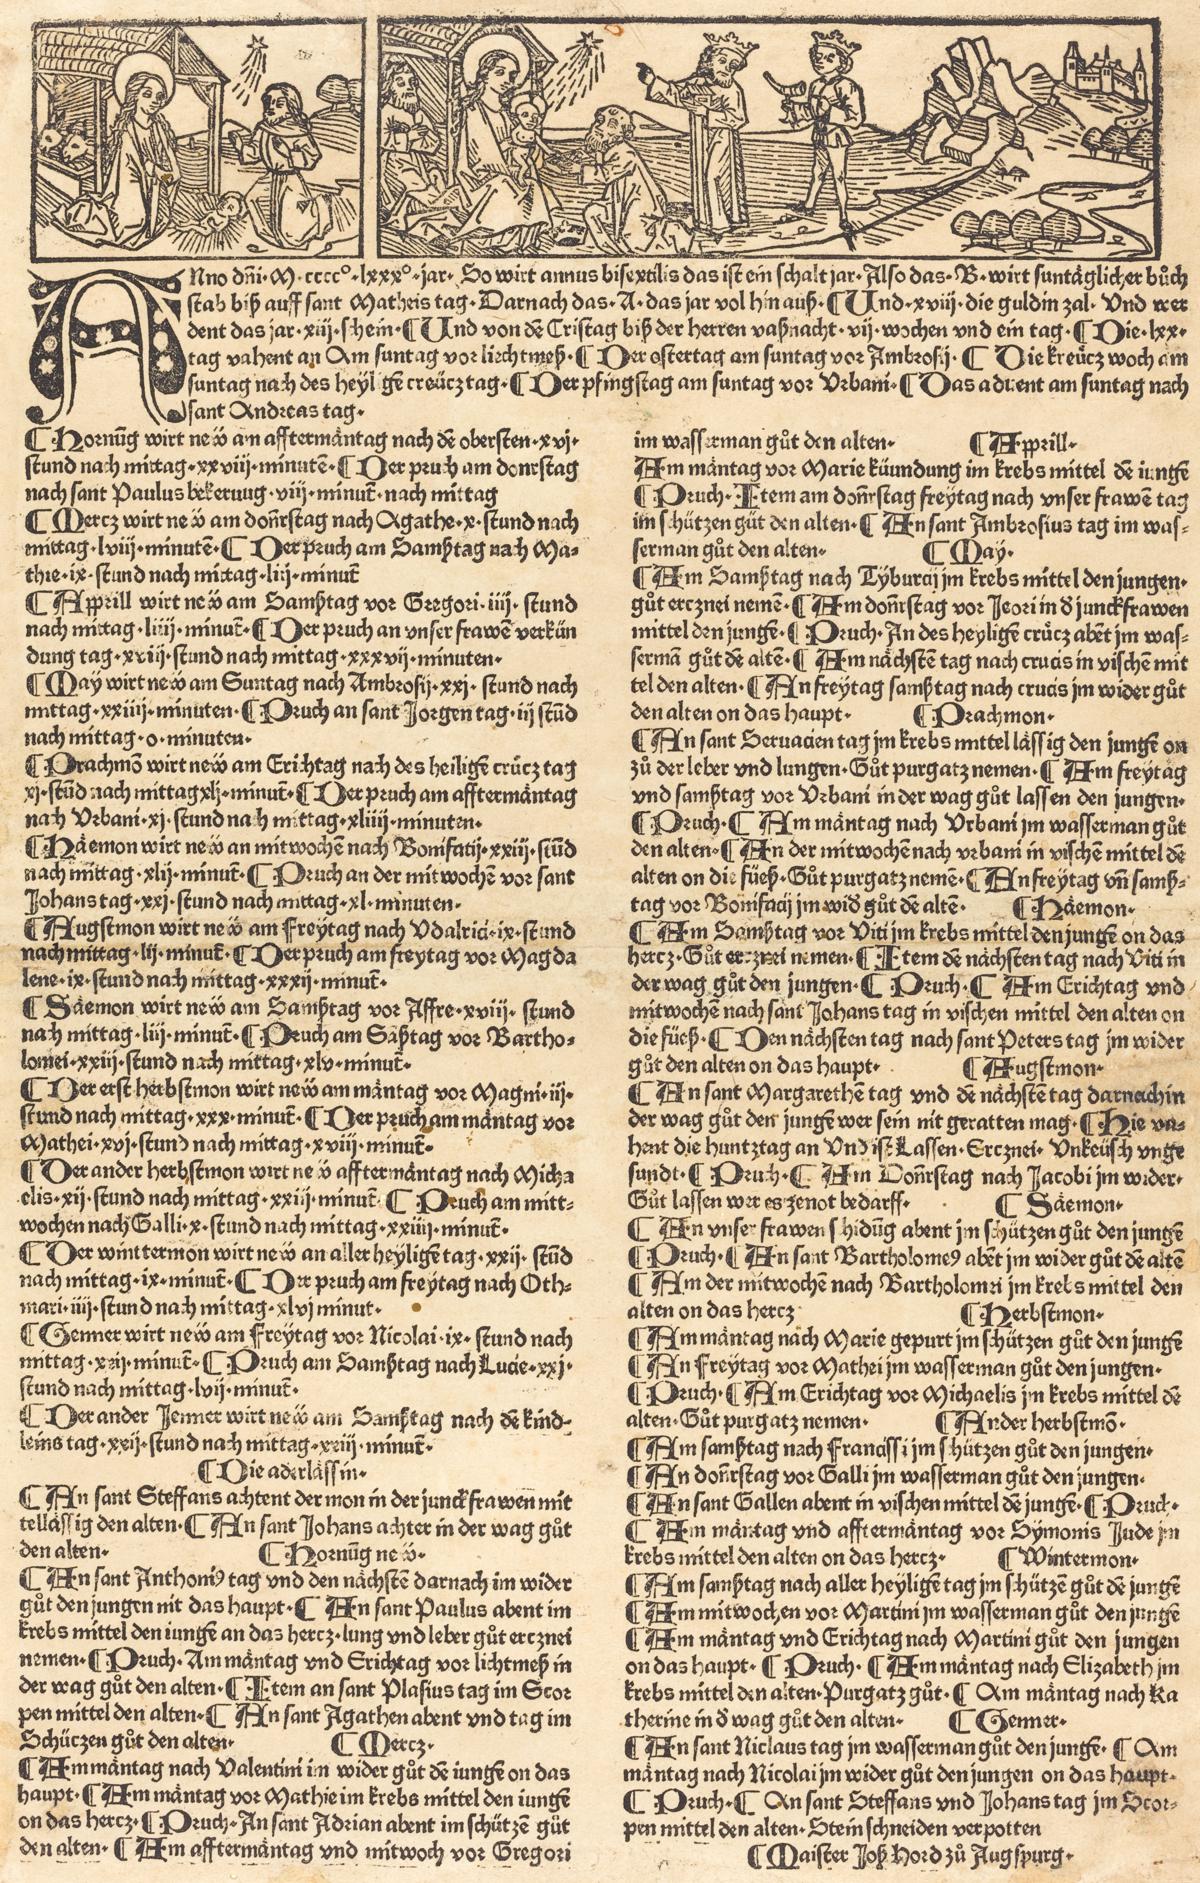 ANno dñi·M·cccc°·lxxx°·jar· So wirt annus bisextilis das ist ein schalt jar·Also das·B·wirt suntäglicher bůch
stab biß auff sant Matheis tag·Darnach das·A·das jar vol hin auß·Und·xviij·die guldin zal·Vnd wer
dent das jar·xiij·shein·Und von dē Cristag biß der herren vaßnacht·vij·wochen vnd ein tag·Die·lxx·
tag vahent an Am suntag vor liechtmeß·Der ostertag am suntag vor Ambrosij·Die kreücz woch am
suntag nach des heyligē creücz tag·Der pfingstag am suntag vor Vrbani·Das aduent am suntag nach
sant Andreas tag·
Hornūg wirt neẅ am afftermäntag nach dē obersten·xvj·
stund nach mittag·xxviij·minutē·Der pruch am donrstag
nach sant Paulus bekerung·viij·minut̄·nach mittag
Mercz wirt neẅ am don̄rstag nach Agathe·x·stund nach
mittag·lviij·minutē·Der pruch am Samßtag nach Ma-
thie·ix·stund nach mittag·liij·minut̄
Apprill wirt neẅ am Samßtag vor Gregori·iiij·stund
nach mittag·liiij·minut̄·Der pruch an vnser frawē verkün
dung tag·xviij·stund nach mittag·xxxvij·minuten·
May wirt neẅ am Suntag nach Ambrosij·xxj·stund nach
mittag·xxiiij·minuten·Pruch an sant Jorgen tag·iij stūd
nach mittag·o·minuten·
Prachmō wirt neẅ am Erichtag nach des heiligē crücz tag
xj·stūd nach mittag xlj·minut̄·Der pruch am afftermäntag
nach Vrbani·xj·stund nach mittag·xliiij·minuten·
Häemon wirt neẅ an mitwochē nach Bonifatij·xxiij·stūd
nach mittag·xlij·minut̄·Pruch an der mitwochē vor sant
Johans tag·xxj·stund nach mittag·xl·minuten·
Augstmon wirt neẅ am Freytag nach Vdalrici·ix·stund
nach mittag·lij·minut̄·Der pruch am freytag vor Magda
lene·ix·stund nach mittag·xxxij·minut̄·
Säemon wirt neẅ am Samßtag vor Affre·xviij·stund
nach mittag·liij·minut̄·Pruch am Sāßtag vor Bartho-
lomei·xxiij·stund nach mittag·xlv·minut̄·
Der erst herbstmon wirt neẅ am mäntag vor Magni·iij·
stund nach mittag·xxx·minut̄·Der pruch am mäntag vor
Mathei·xvj·stund nach mittag·xviij·minut̄·
Der ander herbstmon wirt neẅ afftermäntag nach Micha
elis·xij·stund nach mittag·xxiij·minut̄·Pruch am mitt-
wochen nach Galli·x·stund nach mittag·xxiiij·minut̄·
Der winttermon wirt neẅ an aller heyligē tag·xxij·stūd
nach mittag·ix·minut̄·Der pruch am freytag nach Oth-
mari·iiij·stund nach mittag·xlvj minut·
Genner wirt neẅ am Freytag vor Nicolai·ix·stund nach
mittag·xxij·minut̄·Pruch am Samßtag nach Lucie·xxj·
stund nach mittag·lvij·minut̄·
Der ander Jenner wirt neẅ am Samßtag nach dē kind-
leins tag·xxij·stund nach mittag·xxiij·minut̄·
Die aderlässin·
An sant Steffans achtent der mon in der junckfrawen mit
tellässig den alten·An sant Johans achter in der wag gůt
den alten· Hornūg neẅ·
An sant Anthonyꝰ tag vnd den nächstē darnach im wider
gůt den jungen nit das haupt·An sant Paulus abent im
krebs mittel den iungē an das hercz·lung vnd leber gůt ercznei
nemen·Pruch·Am mäntag vnd Erichtag vor lichtmeß in
der wag gůt den alten·Item an sant Plasius tag im Scor
pen mittel den alten·An sant Agathen abent vnd tag im
Schüczen gůt den alten· Mercz·
Am mäntag nach Valentini im wider gůt dē iungē on das
haupt·Am mäntag vor Mathie im krebs mittel den iungē
on das hercz·Pruch·An sant Adrian abent im schützē gůt
den alten·Am afftermäntag vnd mitwoch vor Gregori
im wasserman gůt den alten· Apprill·
Am mäntag vor Marieküundung im krebs mittel dē iungē
Pruch·Item am don̄rstag freytag nach vnser frawē tag
im schützen gůt den alten·An sant Ambrosius tag im was-
serman gůt den alten· May·
Am Samßtag nach Tyburcij jm krebs mittel den jungen·
gůt ercznei nemē·Am don̄rstag vor Jeori in ð junckfrawen
mittel den jungē·Pruch·An des heyligē crücz abēt jm was-
sermā gůt dē altē·Am nächstē tag nach crucis in vischē mit
tel den alten·An freytag samßtag nach crucis jm wider gůt
den alten on das haupt· Prachmon·
An sant Seruacien tag jm krebs mittellässig den jungē on
zů der leber vnd lungen·Gůt purgatz nemen·Am freytag
vnd samßtag vor Vrbani in der wag gůt lassen den jungen·
Pruch·Am mäntag nach Vrbani jm wasserman gůt
den alten·An der mitwochē nach vrbani in vischē mittel dē
alten on die füeß·Gůt purgatz nemē·An freytag vn̄ samß-
tag vor Bonifacij jm wið gůt dē altē· Häemon·
Am Samßtag vor Viti jm krebs mittel den jungē on das
hercz·Gůt ercznei nemen·Item dē nächsten tag nach Viti in
der wag gůt den jungen·Pruch·Am Erichtag vnd
mitwochē nach sant Johans tag in vischen mittel den alten on
die füeß·Den nächsten tag nach sant Peters tag jm wider
gůt den alten on das haupt· Augstmon·
An sant Margarethē tag vnd dē nächstē tag darnach in
der wag gůt den jungē wer sein nit geratten mag·Hie va-
hent die huntztag an Vnd ist Lassen·Ercznei·Vnkeüsch vnge
sundt·Pruch·Am Don̄rstag nach Jacobi jm wider·
Gůt lassen wer es zenot bedarff· Säemon·
An vnser frawen shidūg abent jm schützen gůt den jungē
Pruch·An sant Bartholomeꝰ abēt jm wider gůt dē altē
Am der mitwochē nach Bartholomei jm krebs mittel den
alten on das hercz Herbstmon·
Am mäntag nach Marie gepurt jm schützen gůt den jungē
An Freytag vor Mathei jm wasserman gůt den jungen·
Pruch·Am Erichtag vor Michaelis jm krebs mittel dē
alten·Gůt purgatz nemen· Ander herbstmō·
Am samßtag nach Francissi jm shützen gůt den jungen·
An don̄rstag vor Galli jm wasserman gůt den jungen·
An sant Gallen abent in vischen mittel dē jungē·Pruch·
Am mäntag vnd afftermäntag vor Symonis Jude jm
krebs mittel den alten on das hercz· Wintermon·
Am samßtag nach aller heyligē tag jm schützē gůt dē jungē
Am mitwochen vor Martini jm wasserman gůt den jungē
Am mäntag vnd Erichtag nach Martini gůt den jungen
on das haupt·Pruch·Am mäntag nach Elizabeth jm
krebs mittel den alten·Purgatz gůt·Am mäntag nach Ka
therine in ð wag gůt den alten· Genner·
An sant Niclaus tag jm wasserman gůt den jungē·Am
mäntag nach Nicolai jm wider gůt den jungen on das haupt·
Pruch·An sant Steffans vnd Johans tag jm Scor-
pen mittel den alten·Stein schneiden verpotten
Maister Joß Hord zů Augspurg·